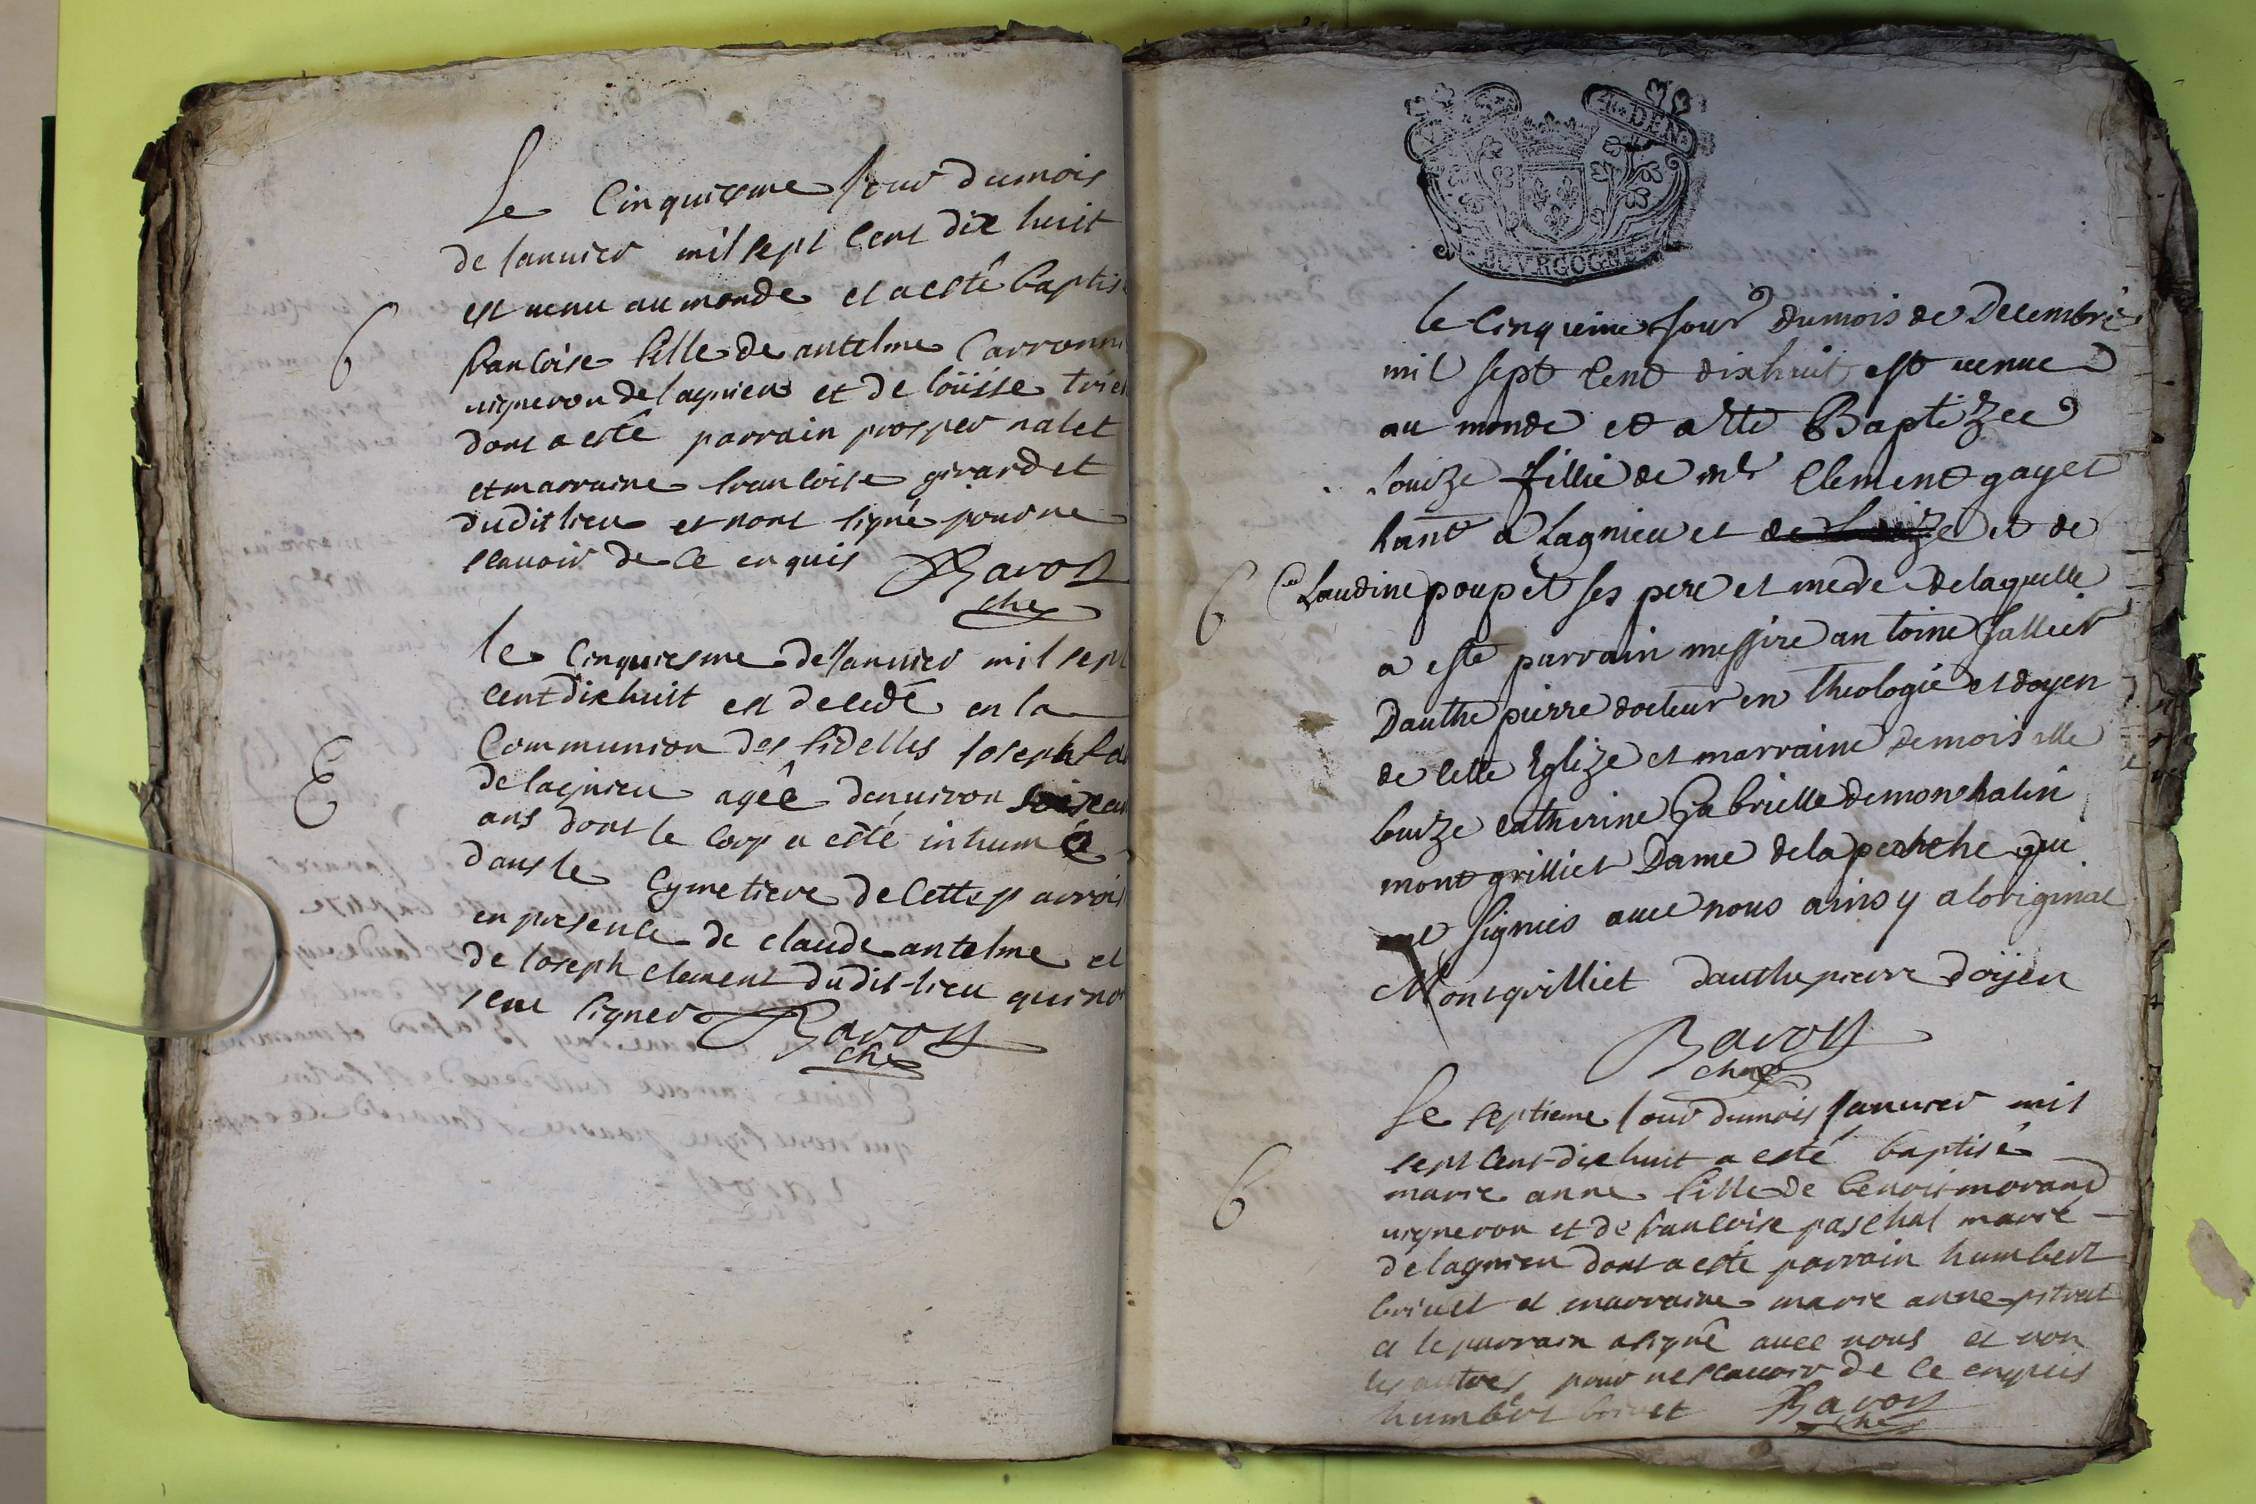 Le Cinquiesme Jour dumois
de Janvier mil sept Cent dix huit
est venu au monde et a esté baptis
francoise fille de antelme Carronni
vigneron de lagnieu et de loüisse
dont a esté parrain prosper nalet
et marraine francoise girardet
dudit lieu et nont signé pour ne
scavoir de ce enquis Ravoy
che
le Cinquiesme de Janvier mil sept
cent dix huit est decedé en la
Communion des fidelles Joseph
de lagnieu agée denviron
ans dont le corp a esté inhumé
dans le Cymetiere de cette parroi
en presence de claude antelme et
de Joseph clement dudit-lieu qui no
seu signer Ravoy
che
B
E
GEN
BOVRGOGNE
le Cinquieme Jour dumois de Decembre
mil sept Cent dixhuit est venue
au monde et a este Baptizee
Louize fillie de mr Clement gayet
hant a Lagnieu et et de
Claudine poupet ses pere et mere delaquelle
a este parrain messire antoine Jallier
Dauthe pierre docteur en Theologie et doyen
de cette Eglize et marraine demoiselle
Louize catherine Gabrielle demonshalin
montgrilliet Dame dela perche qui
ont signies avec nous ainsy a loriginal
Montgrilliet dauthepierre doyen
Ravoy
che
Le septieme Jour dumois Janvier mil
sept Cent-dix huit a esté baptisé
marie anne fille de benoit morand
vigneron et de francoise paschal marié
de lagnieu dont a esté parrain humbert
brivet et marraine marie anne pitrat
et le parrain a signé avec nous et non
les autres pour ne scavoir de ce enquis
humbert brivet Ravoy
che
B
B